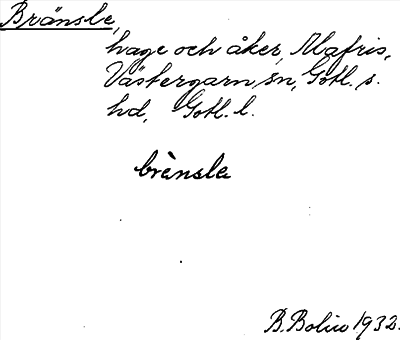 Bränsle,
hage och åker, Mafris,
Västergarn sn, Gotl. s.
hd, Gotl. l.
brènsle
B. Bolin 1932.